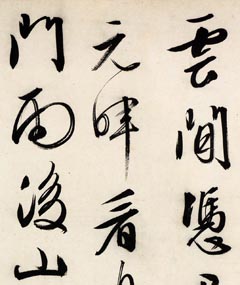 雲間憑
元暉看
門雨後山